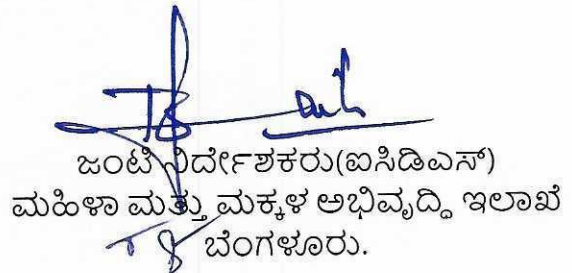 ಜಂಟಿ ನಿರ್ದೇಶಕರು(ಐಸಿಡಿಎಸ್)
ಮಹಿಳಾ ಮತ್ತು ಮಕ್ಕಳ ಅಭಿವೃದ್ಧಿ ಇಲಾಖೆ
ಬೆಂಗಳೂರು.